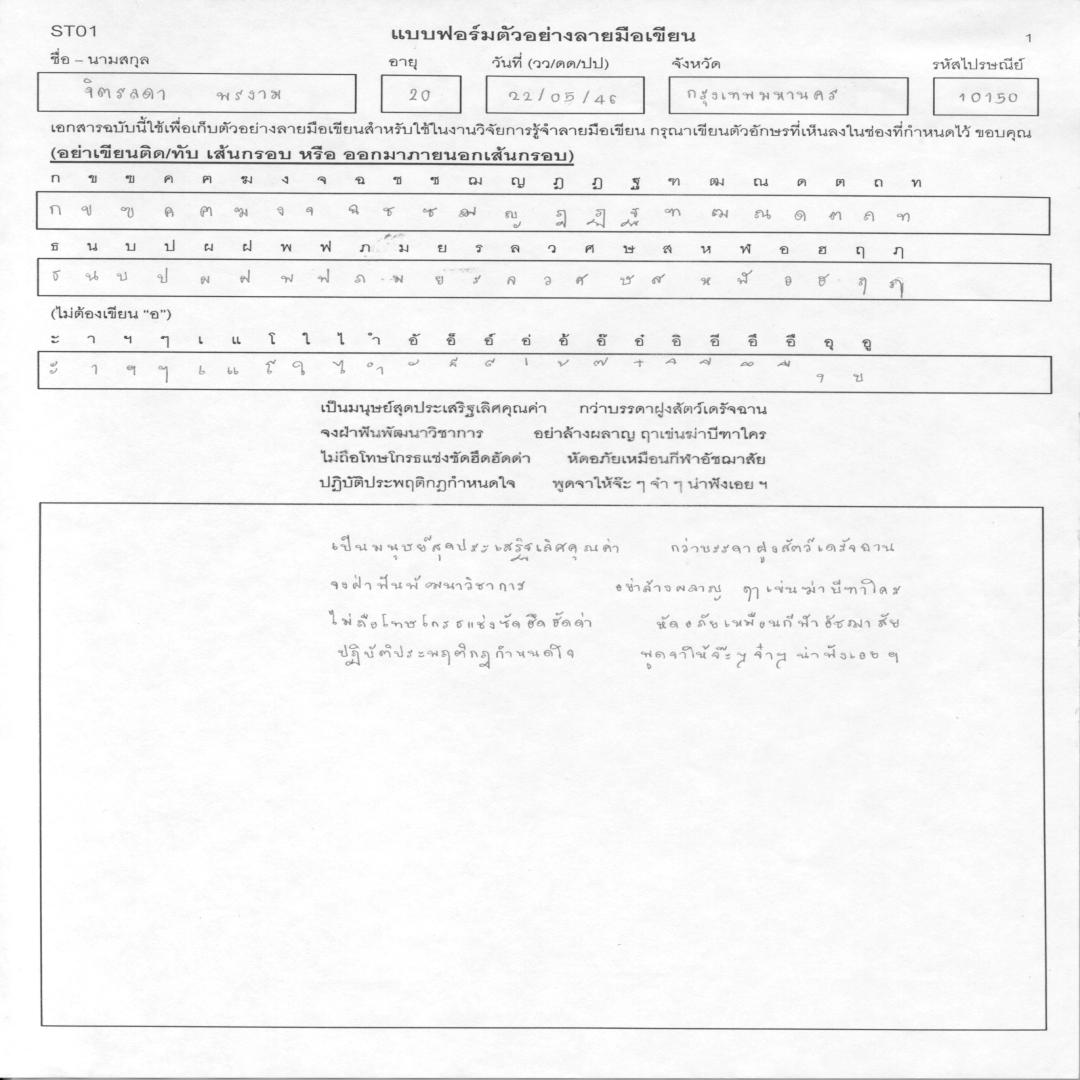 ST01 แบบฟอร์มตัวอย่างลายมือเขียน 1
ชื่อ – นามสกุล อายุ วันที่ (วว/ดด/ปป) จังหวัด รหัสไปรษณีย์
จิตรลดา พรงาม 20 22/05/46 กรุงเทพมหานคร 10150
เอกสารฉบับนี้ใช้เพื่อเก็บตัวอย่างลายมือเขียนสำหรับใช้ในงานวิจัยการรู้จำลายมือเขียน กรุณาเขียนตัวอักษรที่เห็นลงในช่องที่กำหนดไว้ ขอบคุณ
(อย่าเขียนติด/ทับ เส้นกรอบ หรือ ออกมาภายนอกเส้นกรอบ)
ก ข ฃ ค ฅ ฆ ง จ ฉ ช ซ ฌ ญ ฎ ฏ ฐ ฑ ฒ ณ ด ต ถ ท
ก ข ฃ ค ฅ ฆ ง จ ฉ ช ซ ฌ ญ ฎ ฏ ฐ ฑ ฒ ณ ด ต ถ ท
ธ น บ ป ผ ฝ พ ฟ ภ ม ย ร ล ว ศ ษ ส ห ฬ อ ฮ ฤ ฦ
ธ น บ ป ผ ฝ พ ฟ ภ ม ย ร ล ว ศ ษ ส ห ฬ อ ฮ ฤ ฦ
(ไม่ต้องเขียน "อ")
ะ า ฯ ๆ เ แ โ ใ ไ ำ อั อ็ อ์ อ่ อ้ อ๊ อ๋ อิ อี อึ อื อุ อู
ะ า ฯ ๆ เ แ โ ใ ไ ำ ั ็ ์ ่ ้ ๊ ๋ ิ ี ึ ื ุ ู
เป็นมนุษย์สุดประเสริฐเลิศคุณค่า กว่าบรรดาฝูงสัตว์เดรัจฉาน
จงฝ่าฟันพัฒนาวิชาการ อย่าล้างผลาญ ฤาเข่นฆ่าบีฑาใคร
ไม่ถือโทษโกรธแช่งซัดฮึดฮัดด่า หัดอภัยเหมือนกีฬาอัชฌาสัย
ปฏิบัติประพฤติกฎกำหนดใจ พูดจาให้จ๊ะ ๆ จ๋า ๆ น่าฟังเอย ฯ
เป็นมนุษย์สุดประเสริฐเลิศคุณค่า กว่าบรรดาฝูงสัตว์เดรัจฉาน
จงฝ่าฟันพัฒนาวิชาการ อย่าล้างผลาญ ฤาเข่นฆ่าบีฑาใคร
ไม่ถือโทษโกรธแช่งซัดฮึดฮัดด่า หัดอภัยเหมือนกีฬาอัชฌาสัย
ปฏิบัติประพฤติกฎกำหนดใจ พูดจาให้จ๊ะๆ จ๋าๆ น่าฟังเอย ฯ